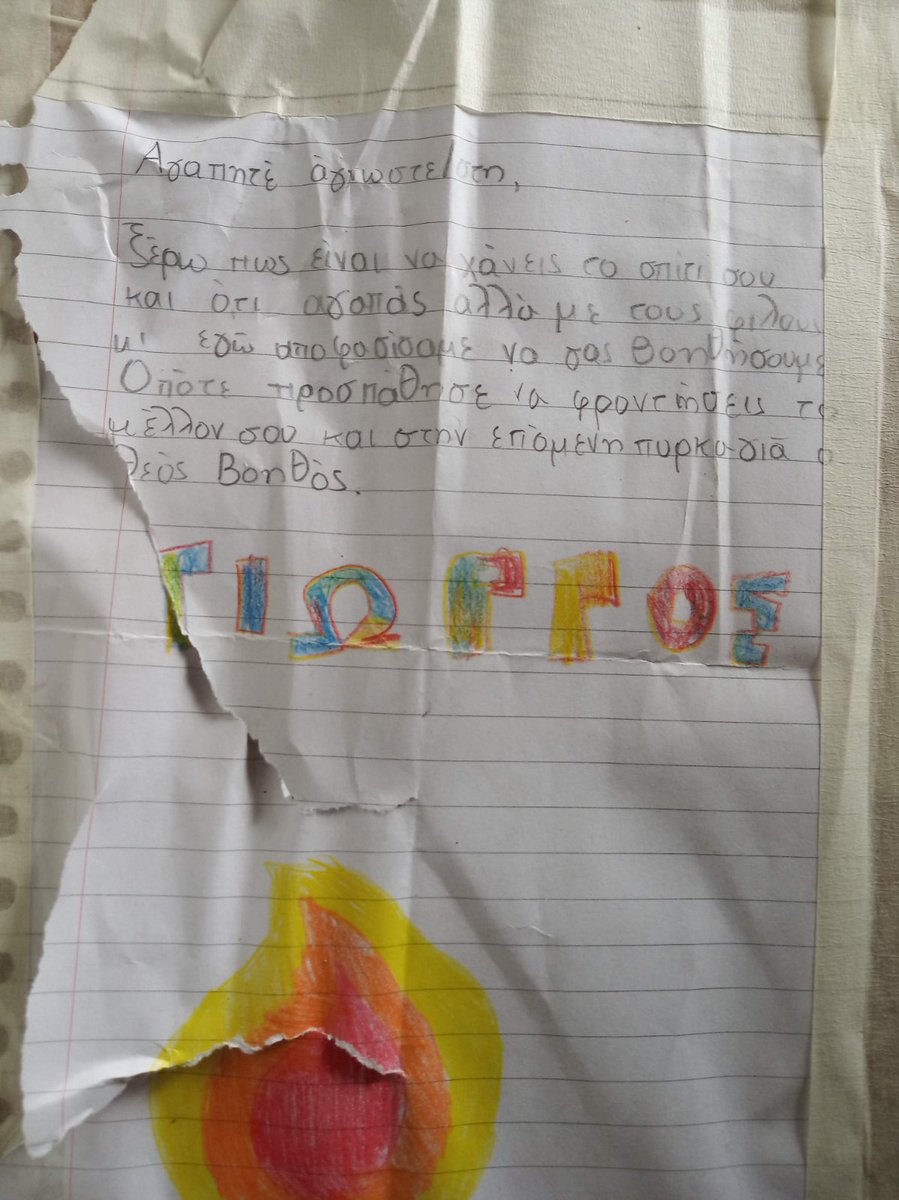 Αγαπητέ
Ξέρω πως είναι να χάνεις το σπίτι σου
και ότι αγαπάς αλλά με τους φίλους
κι' εγώ αποφασίσαμε να σας βοηθήσουμε
Οπότε προσπάθησε να φροντίησεις το
μέλλον σου και στην επόμενη πυρκαγιά ο
θεός Βοηθός.
ΓΙΩΡΓΟΣ